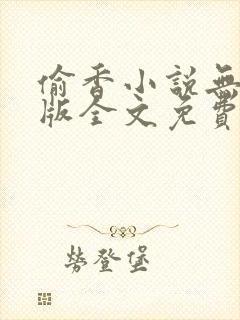 偷香小說無
版全文免費
勞登堡